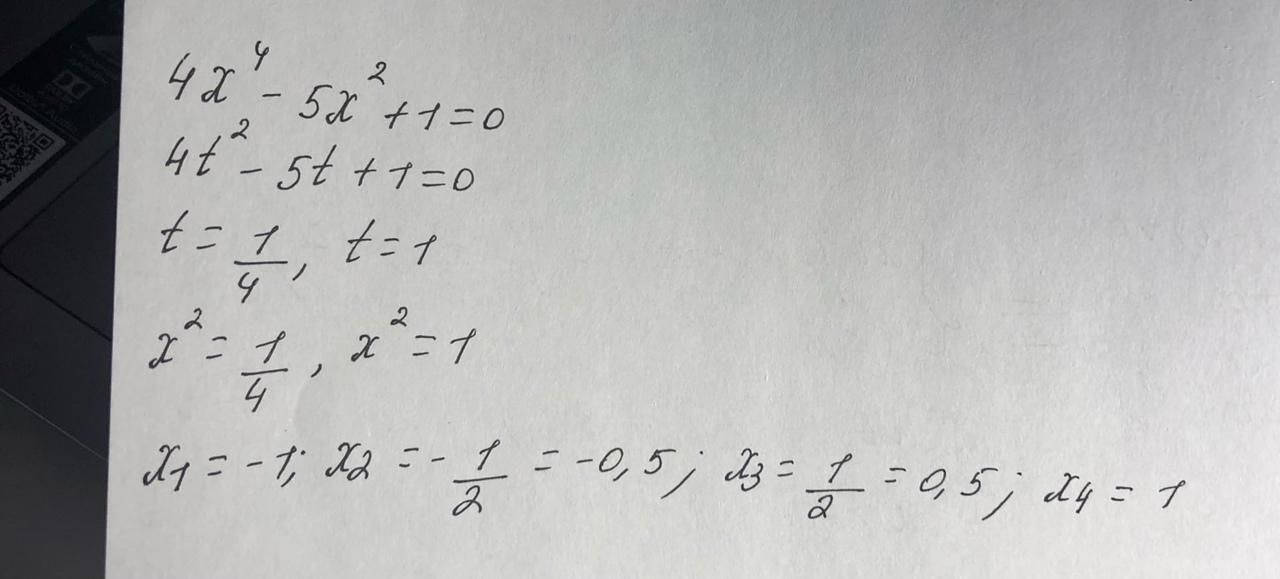 4x⁴ - 5x² + 1 = 0
4t² - 5t + 1 = 0
t = 1/4, t = 1
x² = 1/4, x² = 1
x1 = -1; x2 = -1/2 = -0,5; x3 = 1/2 = 0,5; x4 = 1